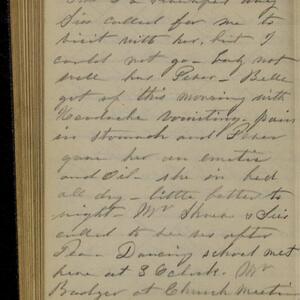 Sis called for me to
visit with her, but I
could not go - baby not
well has Fever - Belle
got up this morning with
Headache vomiting - pain
in stomach and Fever
gave her an emetic
and Oil - she in bed
all day - little better to
night - Mr & Sis
called to see us after
Tea. Dancing school met
here at 3 Oclock. Mr
Badger at Church Meeting